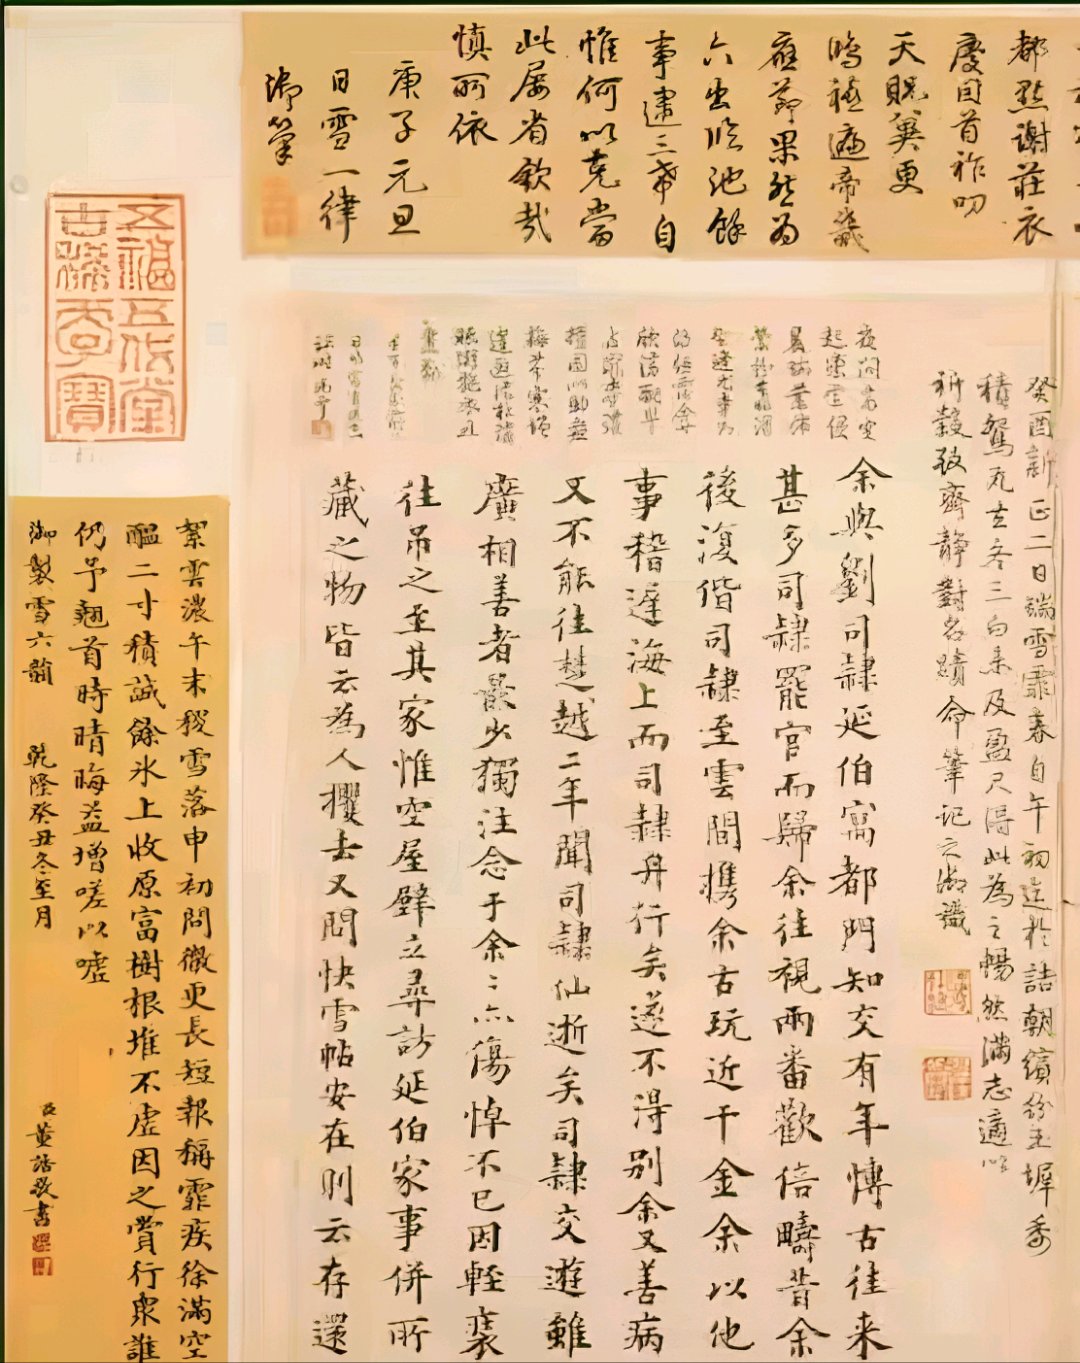 都點謝莊衣
慶自首祚叨
天貺冀更
鴻禧遍帝畿
應節果然為
六出臨池餘
事逮三希自
惟何以克當
此屢省欽哉
慎所依
庚子元旦
日雪一律
御筆
癸酉新正二日瑞雪霏春自午初迄於詰朝繽紛玉墀委
積鴛瓦去冬三白未及盈尺得此為之暢然滿志適以
祈穀致齋靜對名蹟命筆記之御識
余與劉司隸延伯寓都門知交有年博古往來
甚多司隸罷官而歸余往視兩番歡倍疇昔余
後復偕司隸至雲間攜余古玩近千金余以他
事稽遲海上而司隸舟行矣遂不得別余又善病
又不能往楚越二年聞司隸仙逝矣司隸交遊雖
廣相善者最少獨注念于余〻亦傷悼不已因輕裝
往吊之至其家惟空屋壁立尋訪延伯家事併所
藏之物皆云為人攫去又問快雪帖安在則云存還
五福五代堂
古稀天子寶
絮雲濃午末稷雪落申初問徵更長短報稱霏疾徐滿空
醞二寸積誠餘氷上收原富樹根堆不虛因之賞行衆誰
仍予翹首時晴晦益增嗟以噓
御製雪六韻 乾隆癸丑冬至月
臣董誥敬書